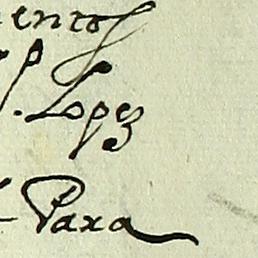 entos
p
. Lopez
Para